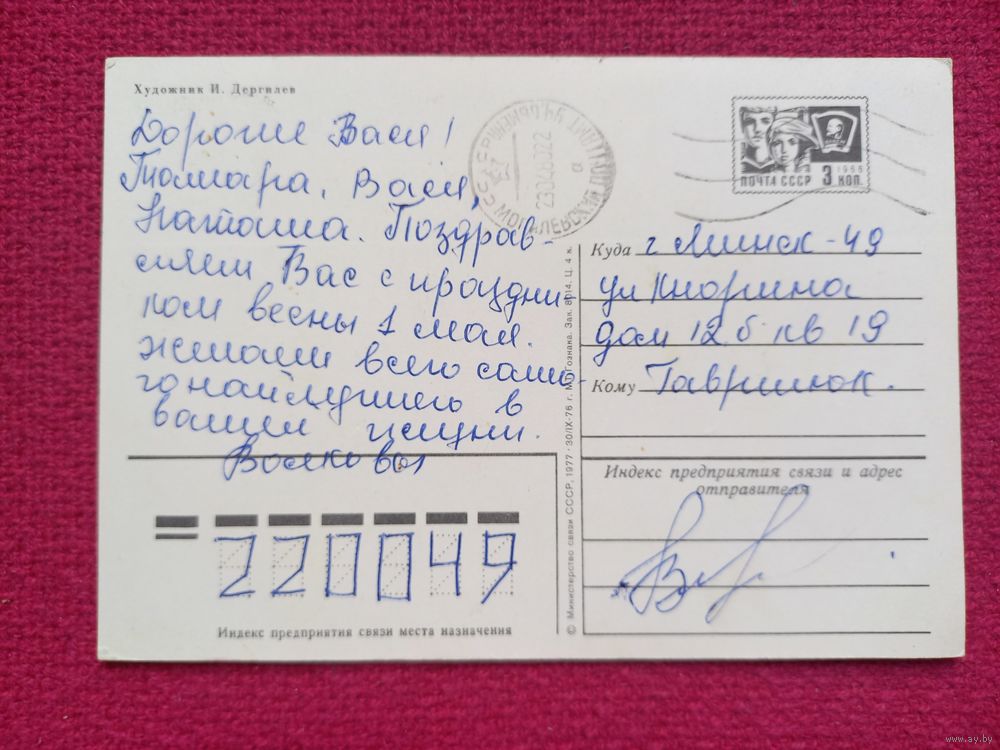 Художник И. Дергилев
Дорогие Вася!
Томара, Вася,
Наташа. Поздрав-
ляем Вас с праздни-
ком весны 1 мая.
желаем всего само-
го найлучшего в
вашей жизни.
Волковы
ПОЧТА СССР 3 КОП.
1966
23040022
а
Куда г Минск-49
ул Кнорина
дом 12 б кв 19
Кому Гаврилюк.
Индекс предприятия связи и адрес
отправителя
220049
Индекс предприятия связи места назначения
© Министерство связи СССР, 1977 · 30/IX-76 г. МПФ Гознака. Зак. 8014. Ц. 4 к.
www.ay.by